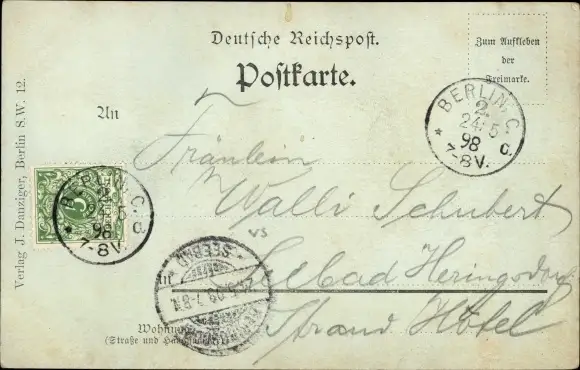 Deutsche Reichspost.
Postkarte.
Zum Aufkleben
der
Freimarke.
An
BERLIN. C.
2.
24/5
98
7-8V.
d.
Fräulein
Walli Schubert
Seebad Heringsdorf
Strand Hôtel
BERLIN. C.
5
98
7-8V.
d.
5
VS
in
SEEBAD
7-8N
Wohnung
(Straße und
Verlag J. Danziger, Berlin S.W. 12.